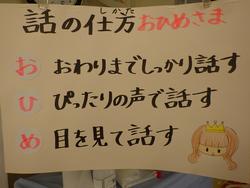 話の仕方おひめさま
お おわりまでしっかり話す
ひ ぴったりの声で話す
め 目を見て話す